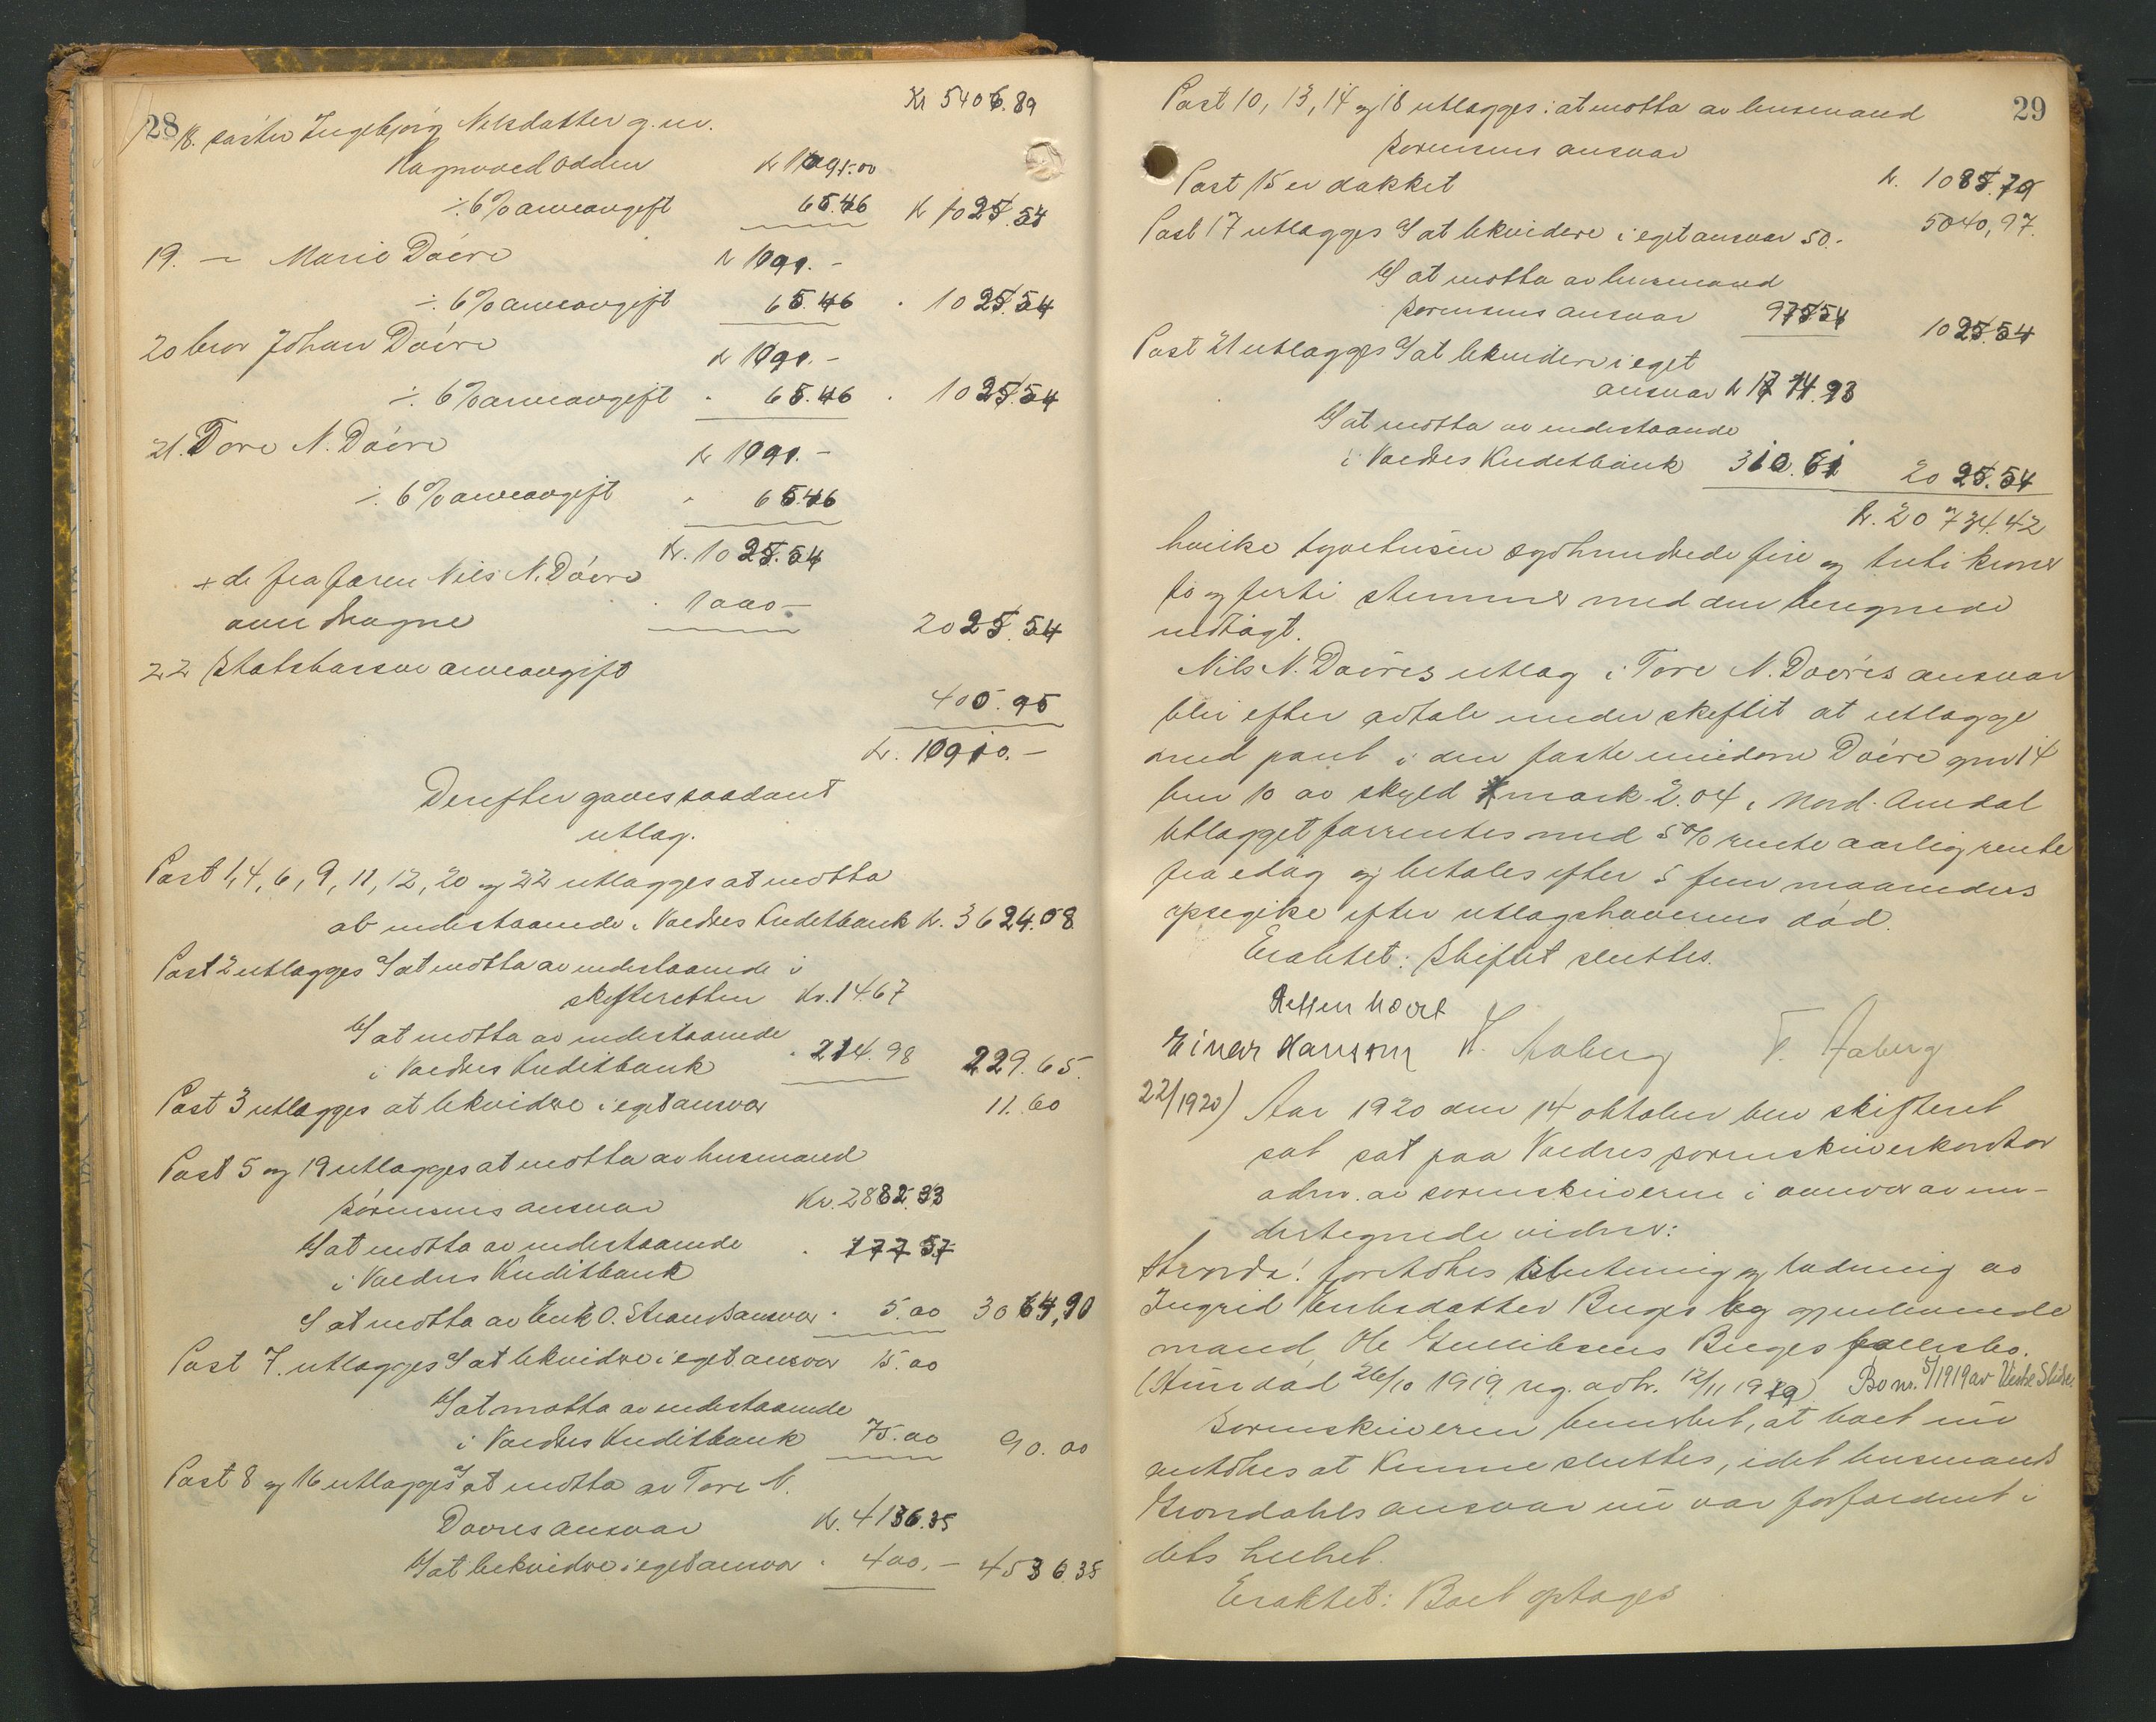 28
Kr 5406.89
18. søster Ingebjørg Nilsdatter g.m.
Ragnvald Odden kr 1091.00
÷ 6% arveavgift 65.46 kr 1025.54
19. — Marie Døvre kr 1091.-
÷ 6% arveavgift 65.46 . 1025.54
20 bror Johan Døvre kr 1091.-
÷ 6% arveavgift . 65.46 . 1025.54
21. Tore N. Døvre kr 1091.-
÷ 6% arveavgift . 65.46
kr. 1025.54
+ de fra faren Nils N. Døvre
1000- 2025.54
22 Statskassen arveavgift
405.95
kr. 10910.-
Derefter gaves saadant
utlæg.
Post 1, 4, 6, 9, 11, 12, 20 og 22 utlægges at motta
av indestaaende i Valdres Kreditbank kr. 3624.08
Post 2 utlægges a/ at motta av indestaaende i
skifteretten kr. 14.67
b/ at motta av indestaaende
i Valdres Kreditbank . 214.98 229.65.
Post 3 utlægges at likvidere i eget ansvar 11.60
Post 5 og 19 utlægges at motta av lensmand
Sørensens ansvar kr. 2882.33
b/ at motta av indestaaende . 177.57
i Valdres Kreditbank
c/ at motta av Erik O. Strands ansvar . 5.00 3064,90
Post 7. utlægges a/ at likvidere i eget ansvar 15.00
b/ at motta av indestaaende
i Valdres Kreditbank 75.00 90.00
Post 8 og 16 utlægges a/ at motta av Tore N.
Døvres ansvar kr. 4136.35
b/ at likvidere i eget ansvar . 400.- 4536.35
29
Post 10, 13, 14 og 18 utlægges: at motta av lensmand
Sørensens ansvar
Post 15 er dækket kr. 1085.79
Post 17 utlægges a/ at likvidere i eget ansvar 50.- 5040,97.
b/ at motta av lensmand
Sørensens ansvar 975.54 1025.54
Post 21 utlægges a/ at likvidere i eget
ansvar kr 1714.93
b/ at motta av indestaaende
i Valdres Kreditbank 310.61 2025.54
kr. 20734.42
hvilke tyvetusen syvhundrede fire og treti kroner
to og førti stemmer med den beregnede
indtægt.
Nils N. Døvres utlæg i Tore N. Døvres ansvar
blir efter avtale under skiftet at utlægge
med pant i den faste eiendom Døvre gnr 14
bnr 10 av skyld mark 2.04 i Nord. Aurdal
Utlægget forrentes med 5% rente aarlig rente
fra idag og betales efter 5 fem maaneders
opsigelse efter utlægshaverens død.
Eraktet: Skiftet sluttes.
Einar Hansson K. Aaberg T. Aaberg
22/1920) Aar 1920 den 14 oktober blev skifteret
sat sat paa Valdres sorenskriverkontor
adm. av sorenskriveren i nærvær av un-
dertegnede vidner:
foretokes slutning og lodning av
Ingrid Eriksdatter Ruges og gjenlevende
mand, Ole Gulliksens Ruges fællesbo.
(Hun død 26/10 1919 reg. avh. 12/11 1919) Bo nr. 5/1919 av Vestre Slidre
Sorenskriveren bemerket, at boet nu
antokes at kunne sluttes, idet lensmand
Grøndahls ansvar nu var forfaldent i
dets helhet.
Eraktet: Boet optages